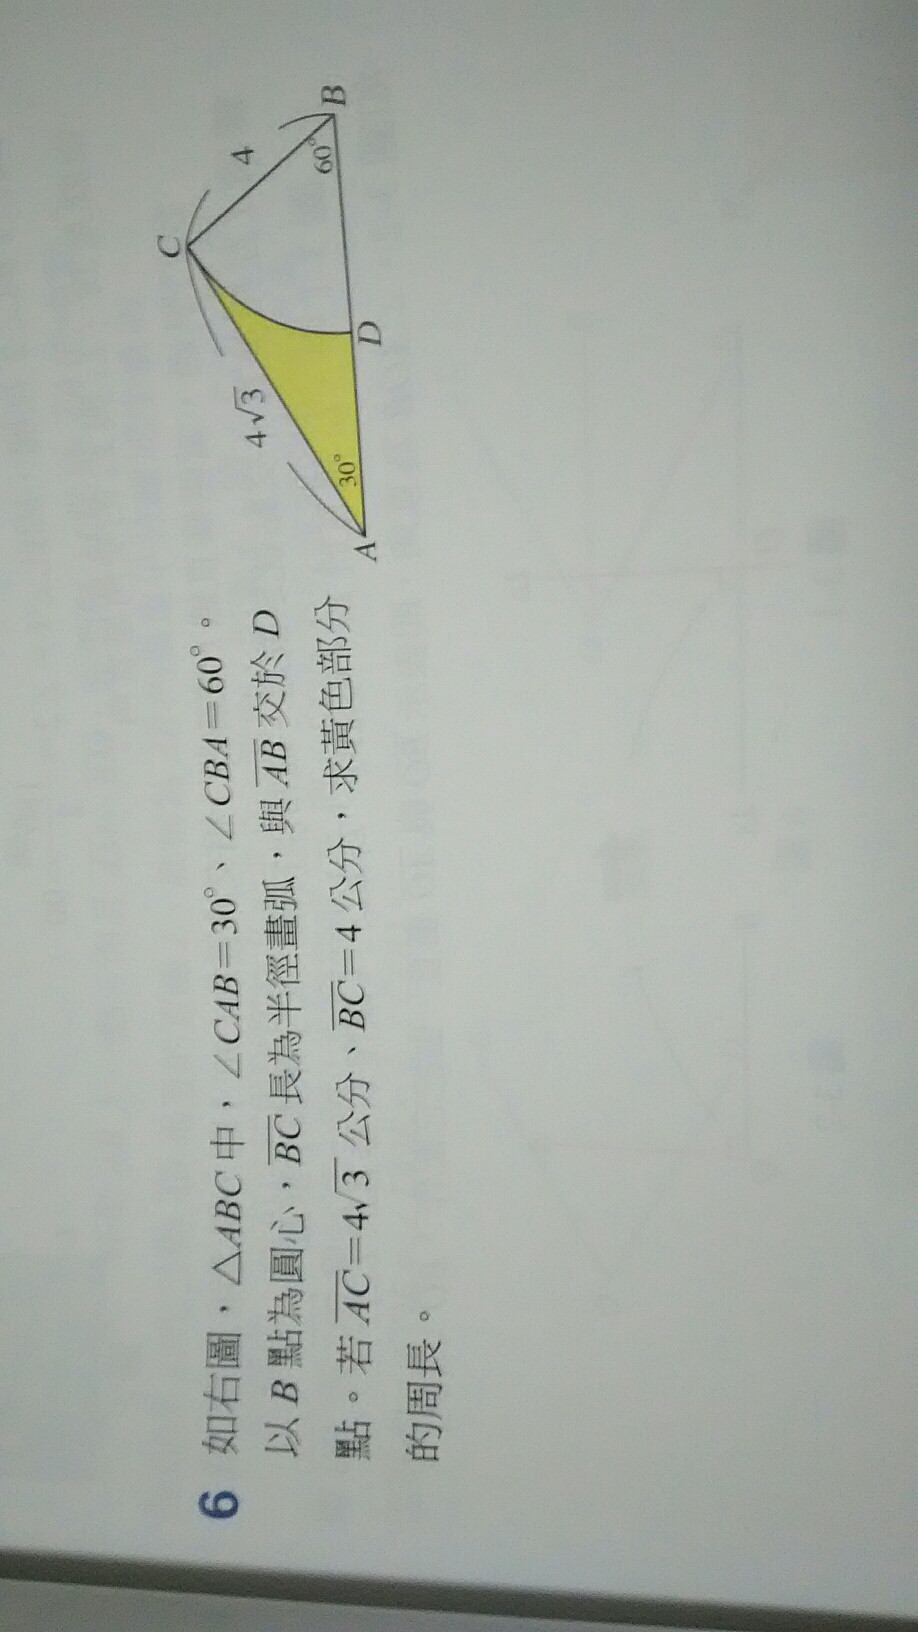 6 如右圖，△ABC中，∠CAB=30°、∠CBA=60°。
以 B 點為圓心，BC 長為半徑畫弧，與 AB 交於 D
點。若 AC=4√3 公分、BC=4 公分，求黃色部分
的周長。
C
4
4√3
60°
B
30°
A
D